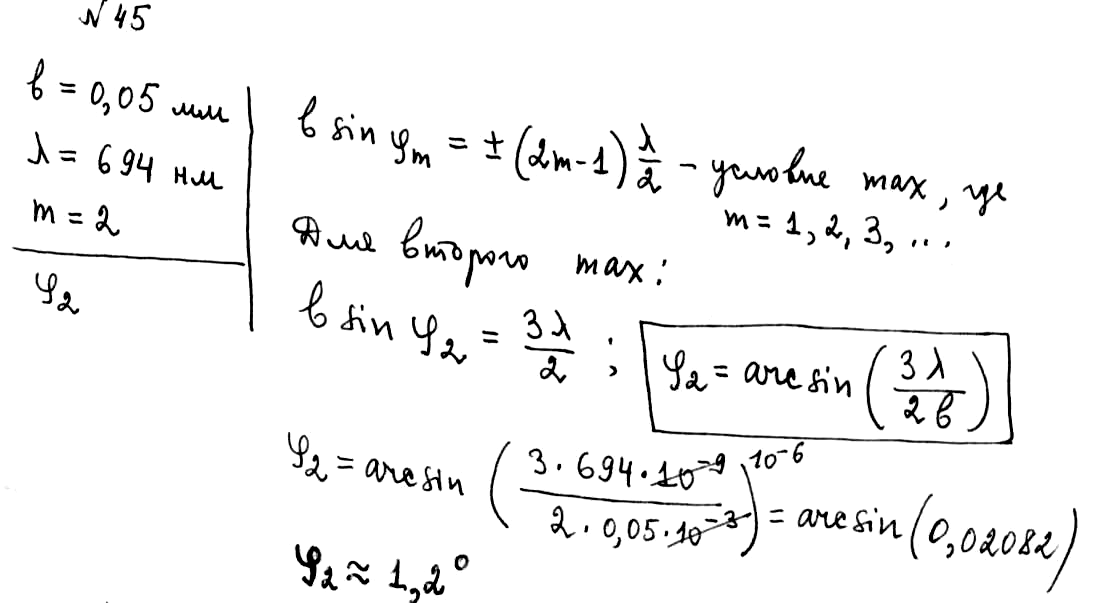 N 45
b = 0,05 мм
λ = 694 нм
m = 2
φ₂
b sin φₘ = ± (2m-1) λ/2 - условие max, где
m = 1, 2, 3, ...
Для второго max:
b sin φ₂ = 3λ/2 ; φ₂ = arcsin (3λ/2b)
φ₂ = arcsin (3 · 694 · 10⁻⁹ / 2 · 0,05 · 10⁻³) 10⁻⁶ = arcsin (0,02082)
φ₂ ≈ 1,2°